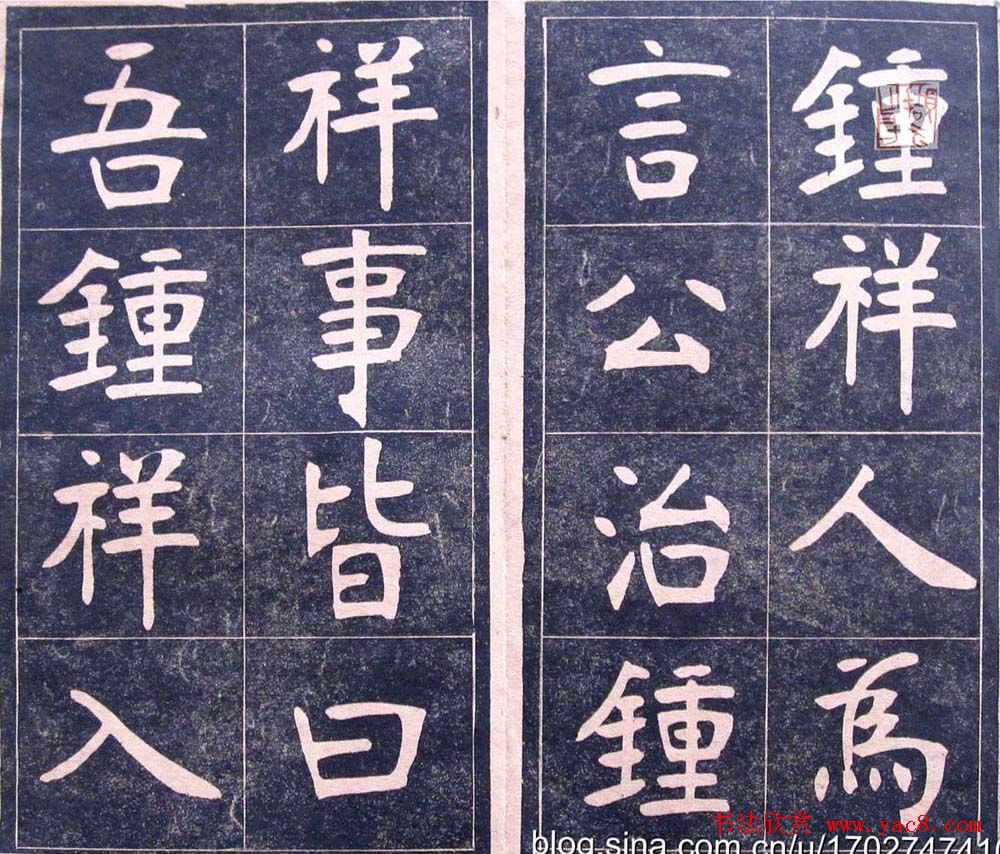 鍾祥人為
言公治鍾
祥事皆曰
吾鍾祥入
书法欣赏 www.yac8.com
blog.sina.com.cn/u/170274741